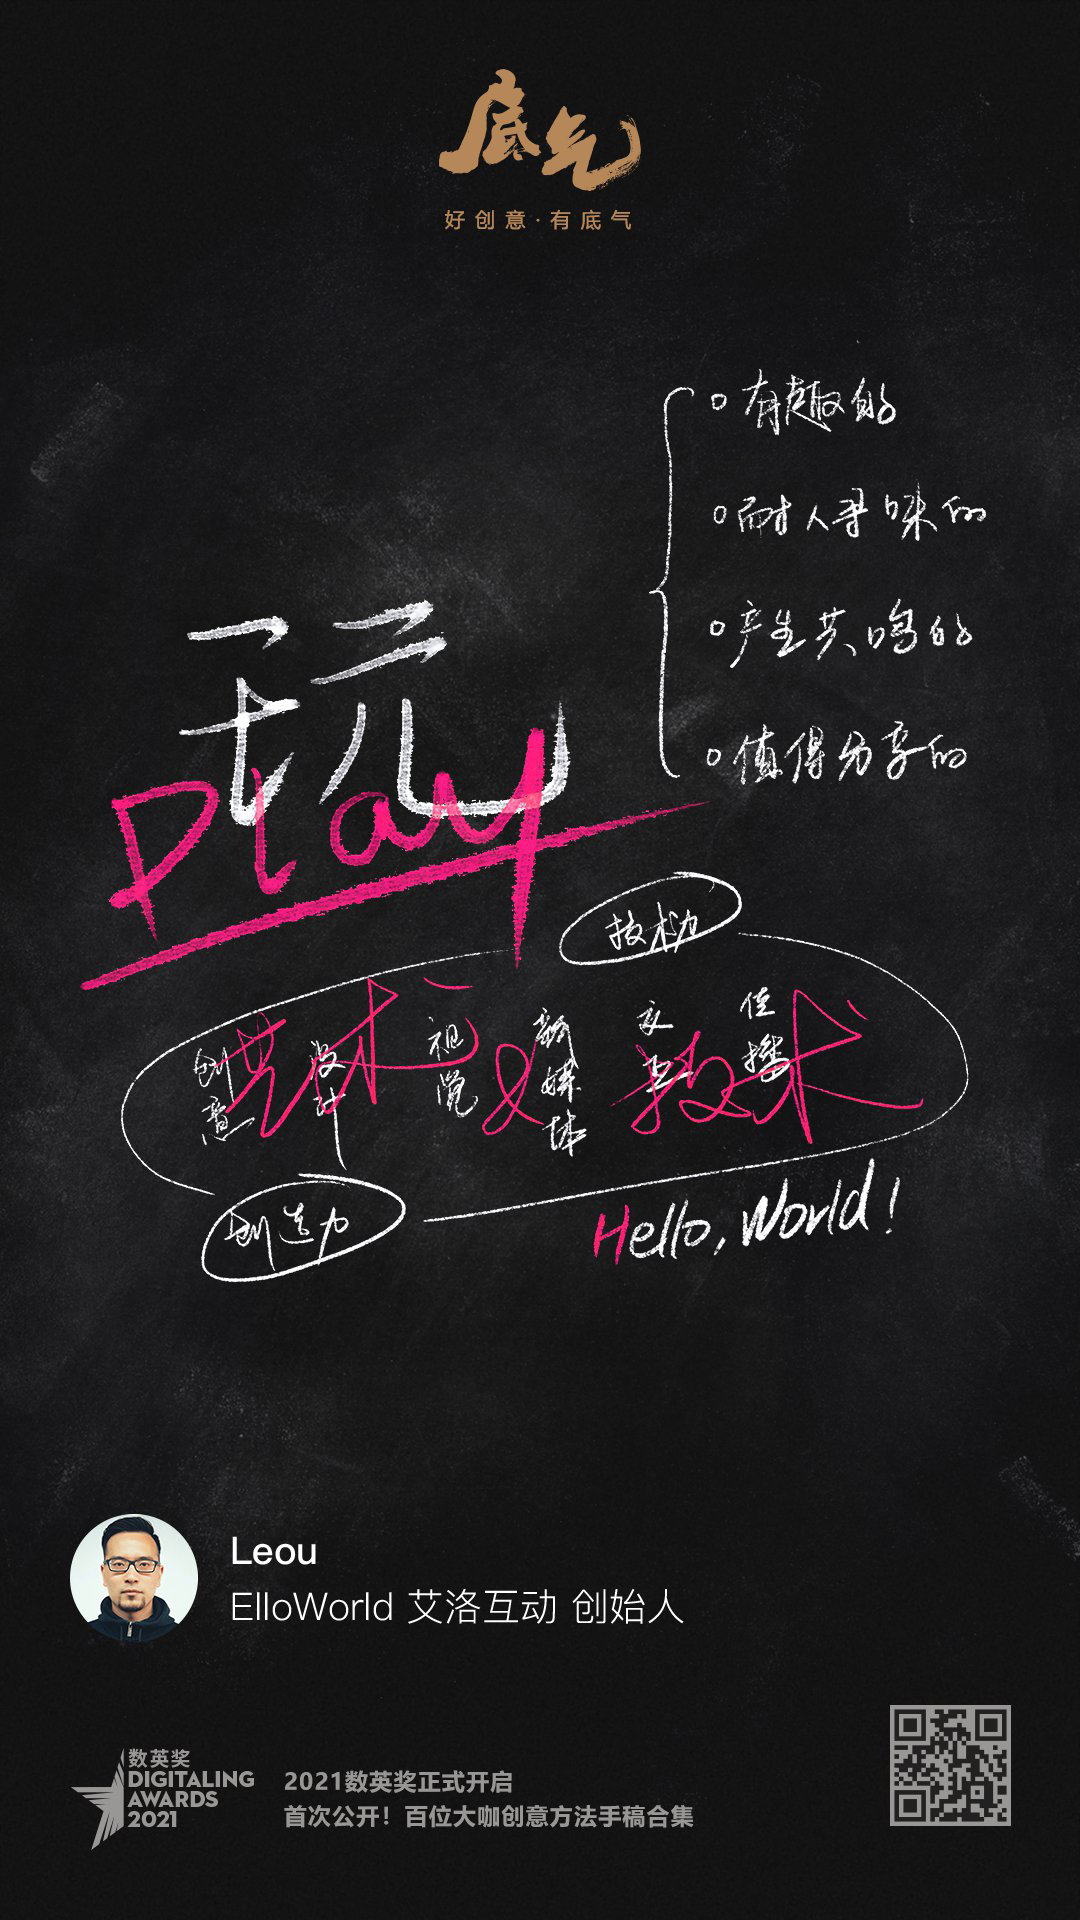 底气
好创意·有底气
有趣的
耐人寻味的
产生共鸣的
值得分享的
玩
Play
技术力
创意
设计
视觉
新媒体
交互
传播
技术
创造力
Hello, World!
Leou
ElloWorld 艾洛互动 创始人
数英奖
DIGITALING
AWARDS
2021
2021数英奖正式开启
首次公开！百位大咖创意方法手稿合集